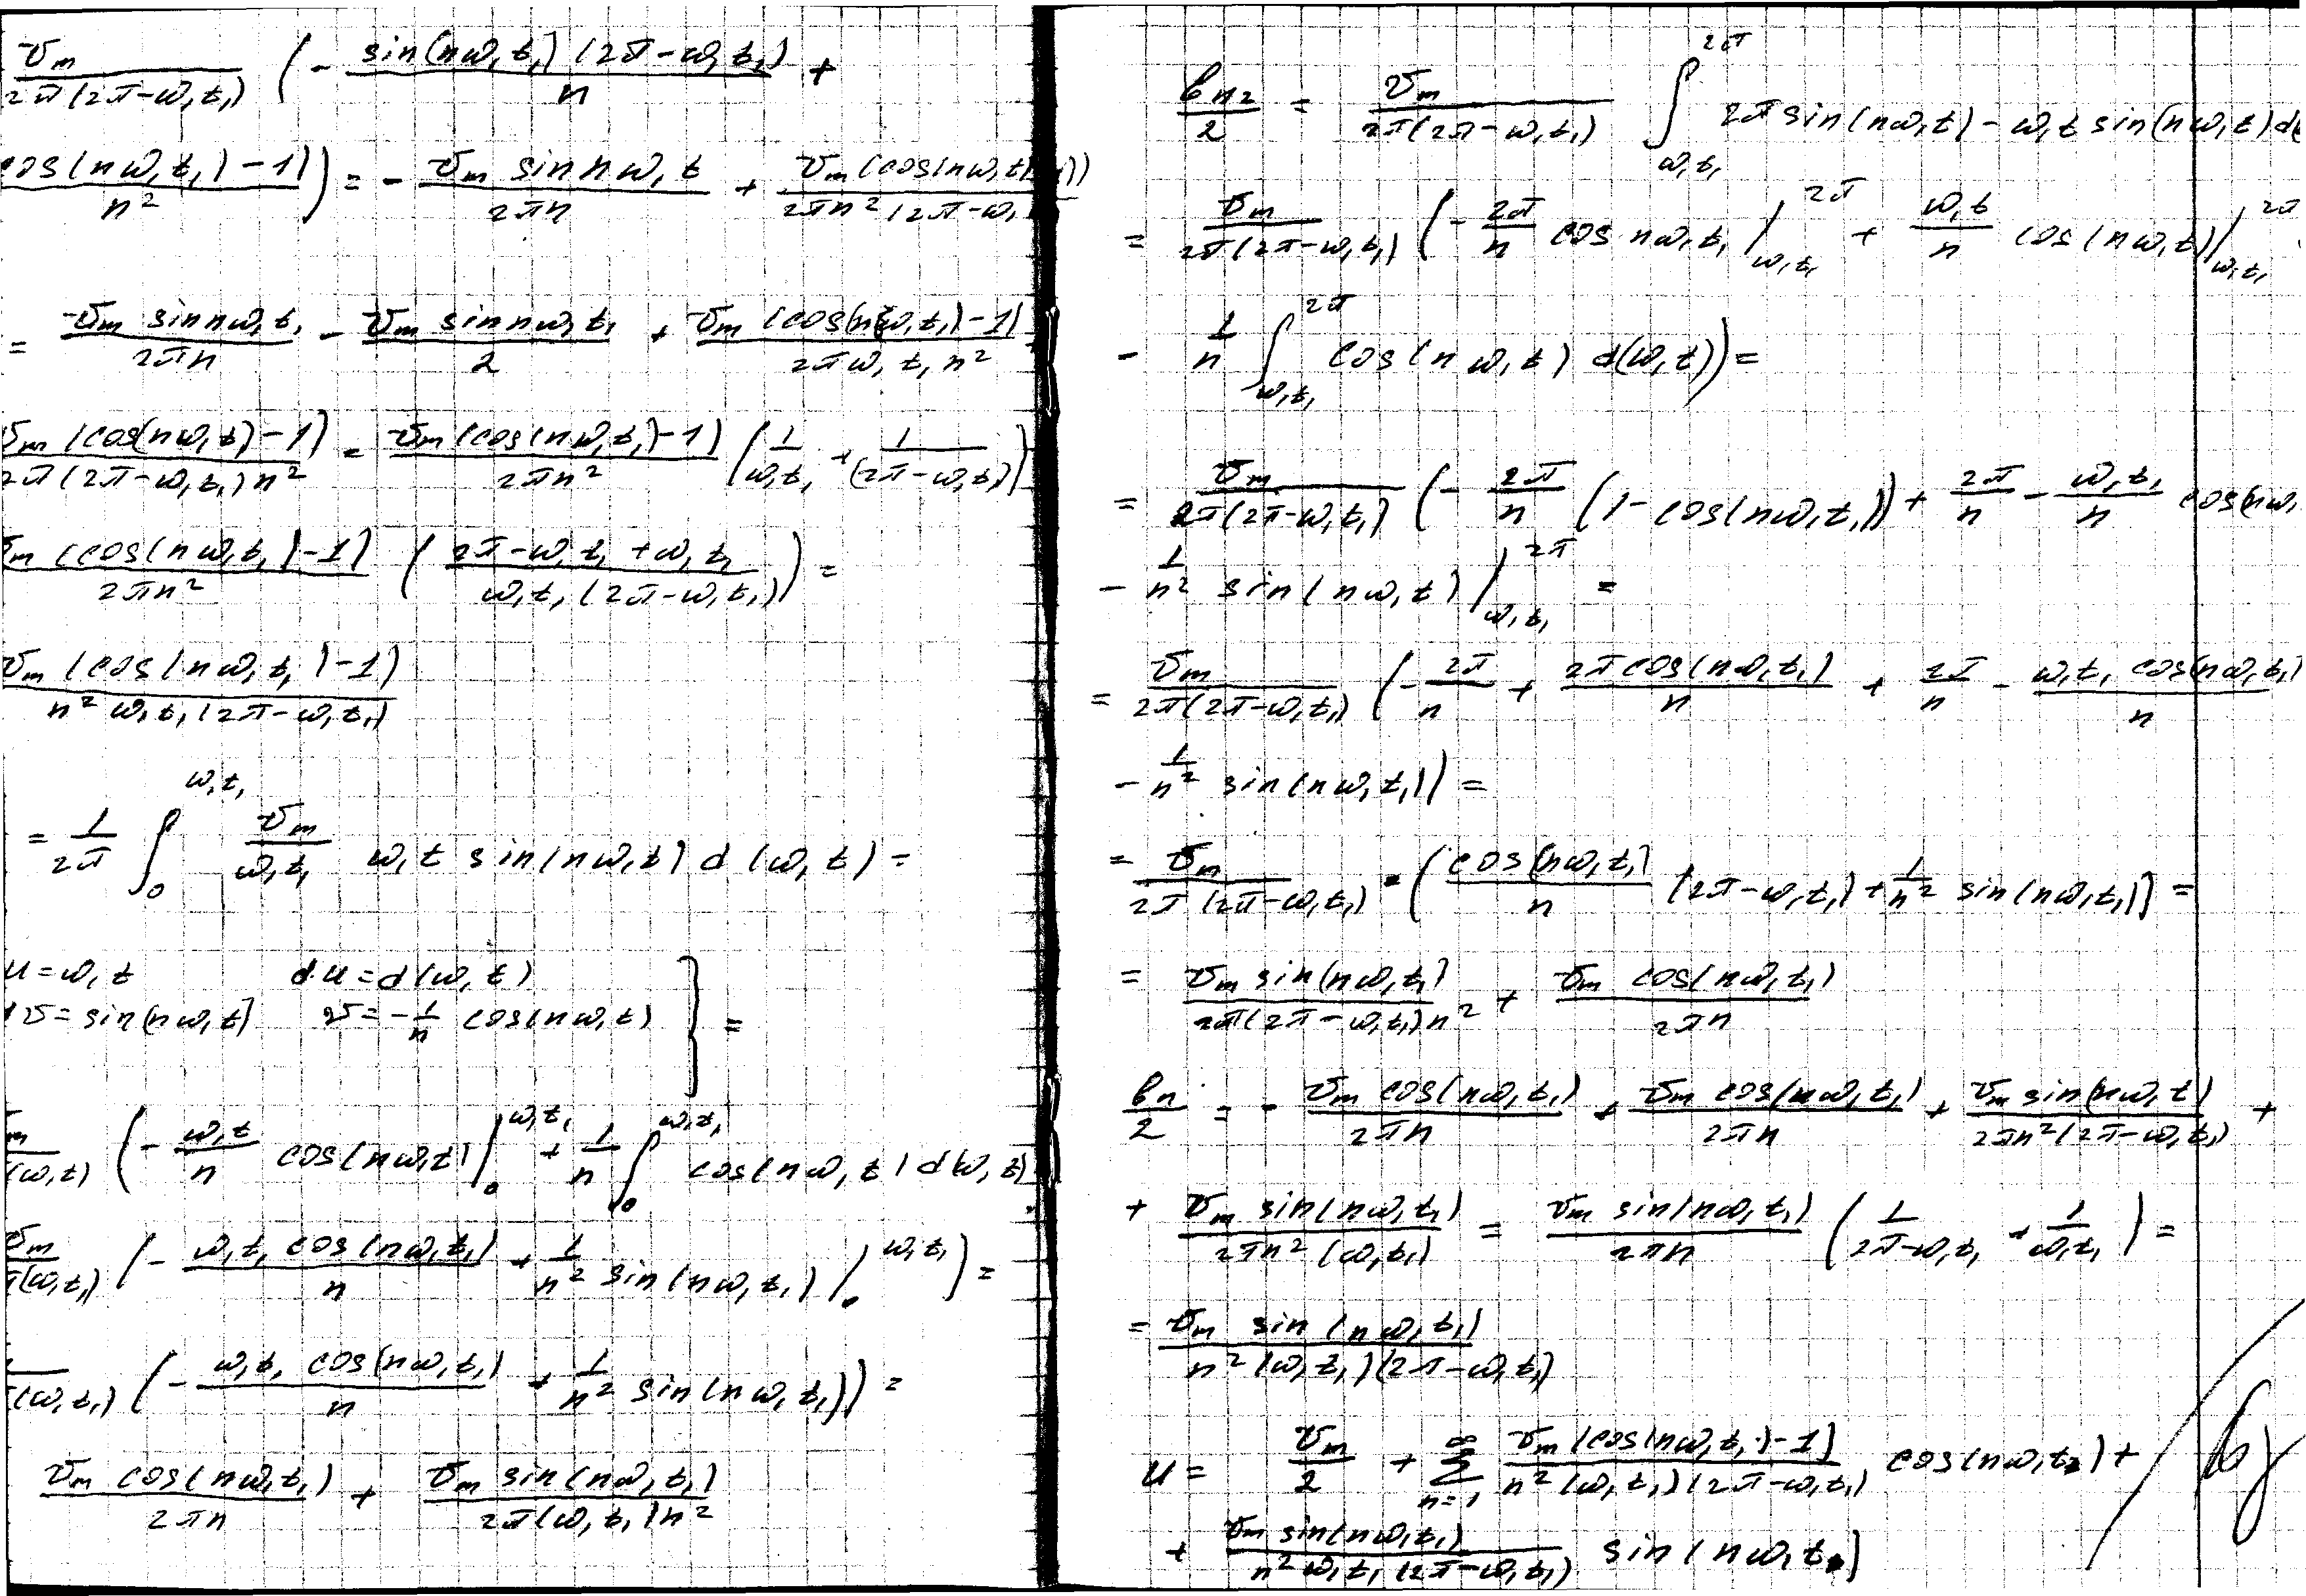 U_m / (2π(2π-ω₁t₁)) (- sin(nω₁t₁)(2π-ω₁t₁) / n +
cos(nω₁t₁)-1) / n²) = - U_m sin nω₁t / 2πn + U_m (cos(nω₁t)
= U_m sin nω₁t₁ / 2πn - U_m sin nω₁t₁ / 2 + U_m (cos(nω₁t₁)-1) / 2πω₁t₁n²
U_m (cos(nω₁t)-1) / 2π(2π-ω₁t₁)n² = U_m (cos(nω₁t₁)-1) / 2πn² (1/ω₁t₁ + 1/(2π-ω₁t₁))
U_m (cos(nω₁t₁)-1) / 2πn² ((2π-ω₁t₁+ω₁t₁) / ω₁t₁(2π-ω₁t₁)) =
U_m (cos(nω₁t₁)-1) / n²ω₁t₁(2π-ω₁t₁)
= 1/2π ∫₀^ω₁t₁ U_m/ω₁t₁ ω₁t sin(nω₁t) d(ω₁t) =
u = ω₁t du = d(ω₁t)
dv = sin(nω₁t) v = -1/n cos(nω₁t) } =
(ω₁t) (- ω₁t/n cos(nω₁t) |₀^ω₁t₁ + 1/n ∫₀^ω₁t₁ cos(nω₁t) d(ω₁t)
U_m / (ω₁t₁) (- ω₁t₁ cos(nω₁t₁) / n + 1/n² sin(nω₁t₁) |₀^ω₁t₁) =
(ω₁t₁) (- ω₁t₁ cos(nω₁t₁) / n + 1/n² sin(nω₁t₁)) =
U_m cos(nω₁t₁) / 2πn + U_m sin(nω₁t₁) / 2π(ω₁t₁)n²
b_n₂/2 = U_m / 2π(2π-ω₁t₁) ∫_ω₁t₁^2π 2π sin(nω₁t) - ω₁t sin(nω₁t) d(
= U_m / 2π(2π-ω₁t₁) (- 2π/n cos nω₁t₁ |_ω₁t₁^2π + ω₁t/n cos(nω₁t) |_ω₁t₁^2π
- 1/n ∫_ω₁t₁^2π cos(nω₁t) d(ω₁t)) =
= U_m / 2π(2π-ω₁t₁) (- 2π/n (1-cos(nω₁t₁)) + 2π/n - ω₁t₁/n cos(nω₁
- 1/n² sin(nω₁t) |_ω₁t₁^2π =
= U_m / 2π(2π-ω₁t₁) (- 2π/n + 2π cos(nω₁t₁)/n + 2π/n - ω₁t₁ cos(nω₁t₁)/n
- 1/n² sin(nω₁t₁)) =
= U_m / 2π(2π-ω₁t₁) (cos(nω₁t₁)/n (2π-ω₁t₁) + 1/n² sin(nω₁t₁)) =
= U_m sin(nω₁t₁) / 2π(2π-ω₁t₁)n² + U_m cos(nω₁t₁) / 2πn
b_n/2 = - U_m cos(nω₁t₁) / 2πn + U_m cos(nω₁t₁) / 2πn + U_m sin(nω₁t) / 2πn²(2π-ω₁t₁) +
+ U_m sin(nω₁t₁) / 2πn²(ω₁t₁) = U_m sin(nω₁t₁) / 2πn (1/2π-ω₁t₁ + 1/ω₁t₁) =
= U_m sin(nω₁t₁) / n²(ω₁t₁)(2π-ω₁t₁)
u = U_m/2 + Σ_{n=1}^∞ U_m (cos(nω₁t₁)-1) / n²(ω₁t₁)(2π-ω₁t₁) cos(nω₁t) +
+ U_m sin(nω₁t₁) / n²ω₁t₁(2π-ω₁t₁) sin(nω₁t)